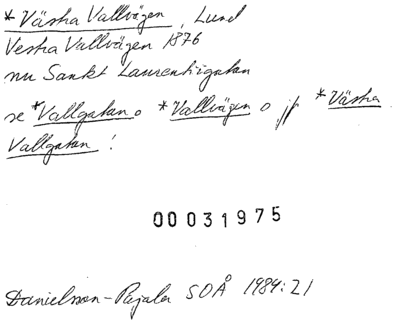 *Västra Vallvägen, Lund
Vestra Vallvägen 1876
nu Sankt Laurentiigatan
se *Vallgatan o *Vallvägen o jfr *Västra
Vallgatan!
00031975
Danielsson-Pajala SOÅ 1984:21